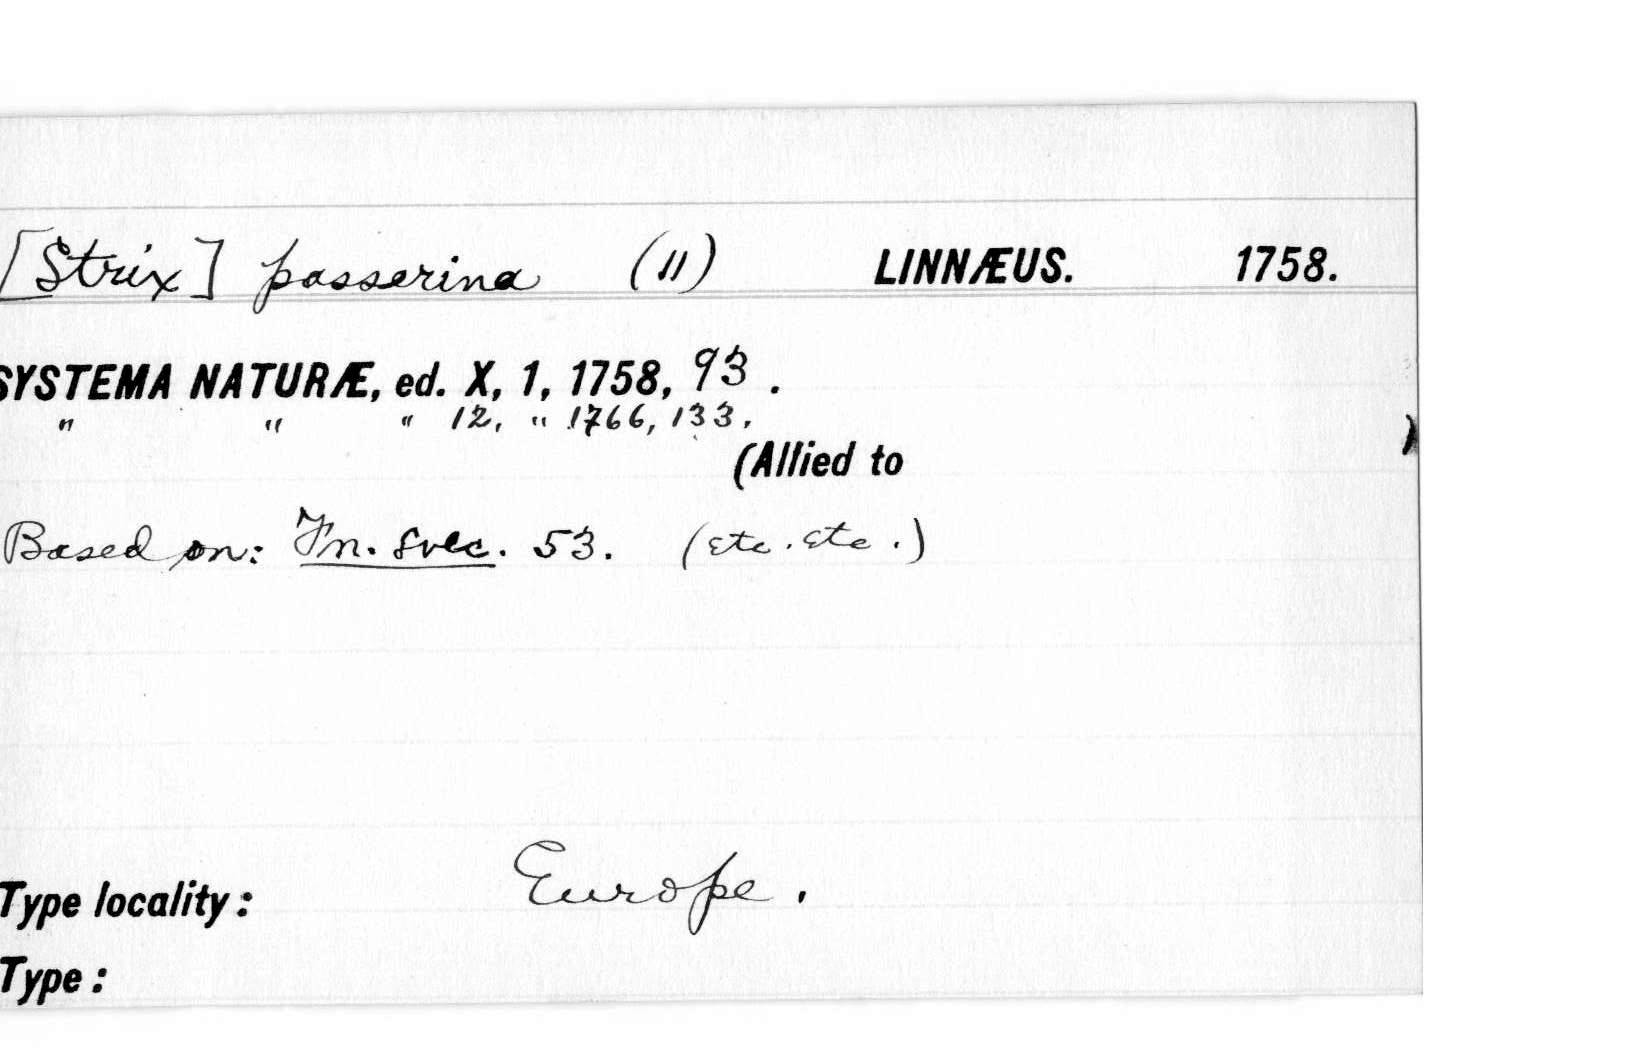 [Strix] passerina (11) LINNÆUS. 1758.
SYSTEMA NATURÆ, ed. X, 1, 1758, 93.
" " " 12, " 1766, 133.
(Allied to )
Based on: Fn. Svec. 53. (etc. etc.)
Type locality: Europe.
Type: